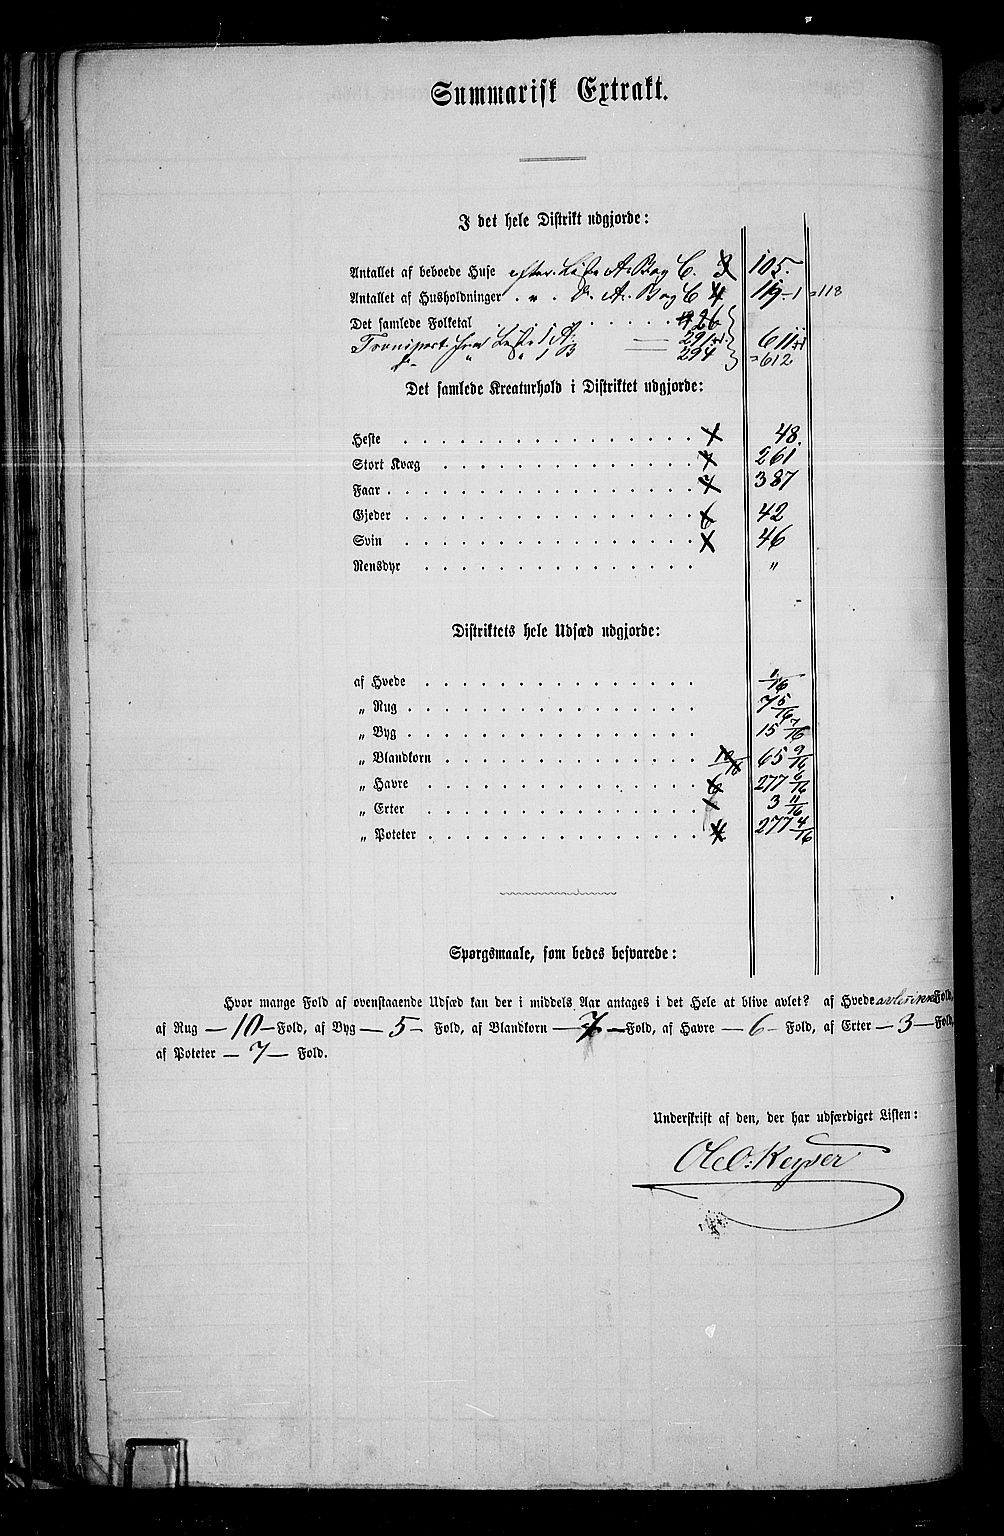 Summarisk Extrakt.
I det hele Distrikt udgjorde:
Antallet af beboede Huse efter Liste A. B og C. 105.
Antallet af Husholdninger . " . D. A. B og C 119-1 =118
Det samlede Folketal . . . . . . 26
Transport fra Liste 1 A. 291+1 611+1
" " 1 B 294 =612
Det samlede Kreaturhold i Distriktet udgjorde:
Heste . . . . . . . . . . . . . . . . 48.
Stort Kvæg . . . . . . . . . . . . . . 261
Faar . . . . . . . . . . . . . . . . . 387
Gjeder . . . . . . . . . . . . . . . . 42
Svin . . . . . . . . . . . . . . . . 46
Rensdyr . . . . . . . . . . . . . . . "
Distriktets hele Udsæd udgjorde:
af Hvede . . . . . . . . . . . . . . . /16
„ Rug . . . . . . . . . . . . . . . . 7 5/16
„ Byg . . . . . . . . . . . . . . . . 15 7/16
„ Blandkorn . . . . . . . . . . . . . . 65 9/16
„ Havre . . . . . . . . . . . . . . . 277 6/16
„ Erter . . . . . . . . . . . . . . . 3 11/16
„ Poteter . . . . . . . . . . . . . . . 277 4/16
Spørgsmaale, som bedes besvarede:
Hvor mange Fold af ovenstaaende Udsæd kan der i middels Aar antages i det Hele at blive avlet? af Hvede avles ikke Fold,
af Rug — 10 — Fold, af Byg — 5 — Fold, af Blandkorn — 7 — Fold, af Havre — 6 — Fold, af Erter — 3 — Fold,
af Poteter — 7 — Fold.
Underskrift af den, der har udfærdiget Listen:
Ole O: Keyser